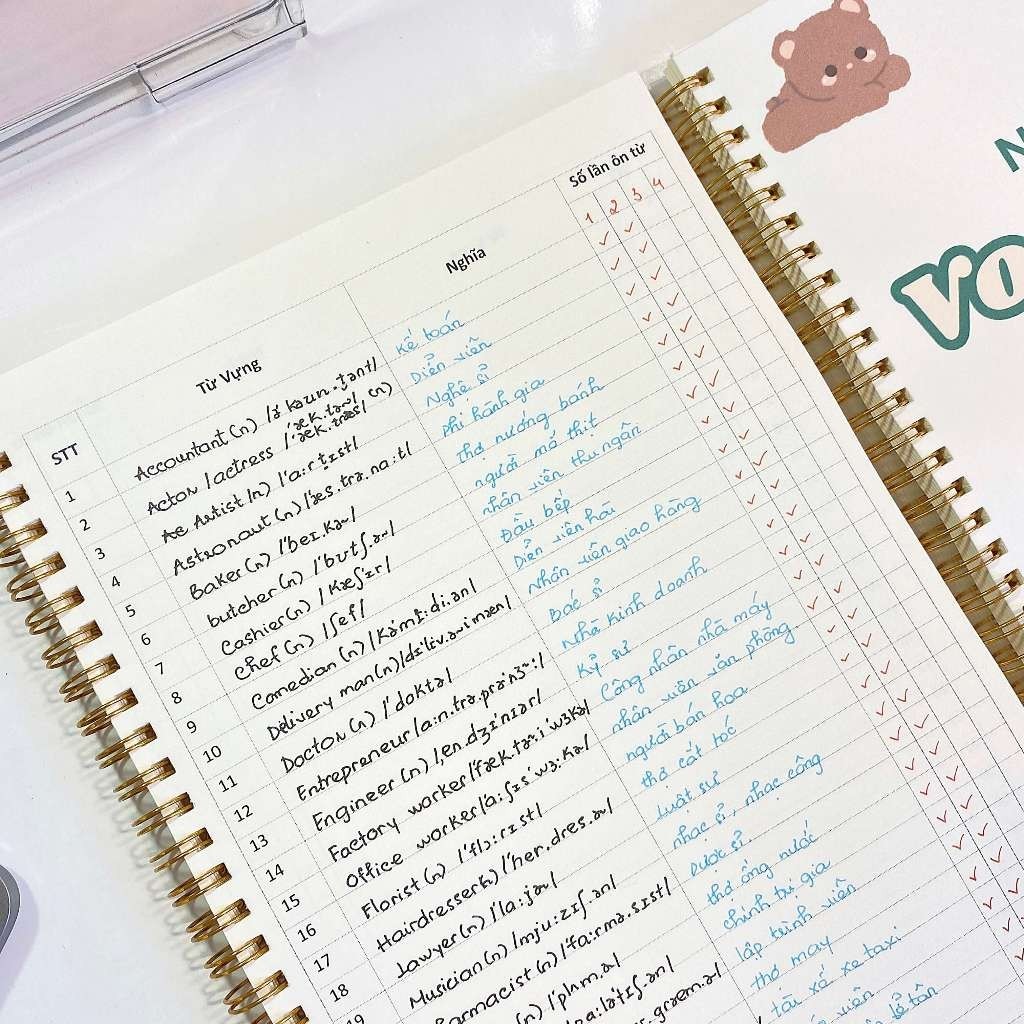 Số lần ôn từ
STT Từ Vựng Nghĩa 1 2 3 4
1 Accountant (n) /əˈkaʊn.t̬ənt/ Kế toán
2 Actor /actress /ˈæk.tɚ/ /ˈæk.trəs/ (n) Diễn viên
3 Artist (n) /ˈɑːr.t̬ɪst/ Nghệ sĩ
4 Astronaut (n) /ˈæs.trə.nɑːt/ phi hành gia
5 Baker (n) /ˈbeɪ.kɚ/ thợ nướng bánh
6 butcher (n) /ˈbʊtʃ.ɚ/ người mổ thịt
7 Cashier (n) /kæʃˈɪr/ nhân viên thu ngân
8 chef (n) /ʃef/ Đầu bếp
9 Comedian (n) /kəˈmiː.di.ən/ Diễn viên hài
10 Delivery man (n) /dɪˈlɪv.ɚ.i mæn/ Nhân viên giao hàng
11 Doctor (n) Bác sĩ
12 Entrepreneur Nhà kinh doanh
13 Engineer (n) /ˌen.dʒɪˈnɪər/ Kỹ sư
14 Factory worker Công nhân nhà máy
15 Office worker nhân viên văn phòng
16 Florist (n) /ˈflɔː.rɪst/ người bán hoa
17 Hairdresser /ˈher.dres.ɚ/ thợ cắt tóc
18 Lawyer (n) /ˈlɑː.jɚ/ Luật sư
19 Musician (n) /mjuːˈzɪʃ.ən/ nhạc sĩ, nhạc công
armacist (n) /ˈfɑːr.mə.sɪst/ Dược sĩ
(n) /ˈplʌm.ɚ/ thợ ống nước
chính trị gia
lập trình viên
thợ may
tài xế xe taxi
viên
lễ tân
N
VO